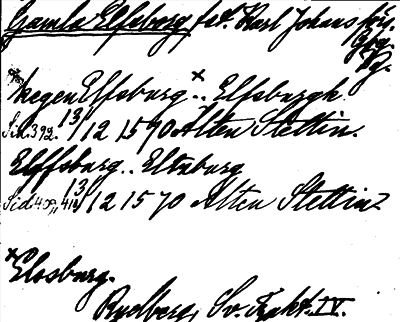 Gamla Elfsborg fäst. Karl Johans förs.
Gbg.
Vg.
wegen Elfsburg x.. Elfsburgh.
Sid. 392. 13/12 1570 Alten Stettin.
Elffsburg.. Eltzburg
Sid. 13/12 1570 Alten Stettin
x Elosburg.
Rydberg, Sv. Trakt. IV.